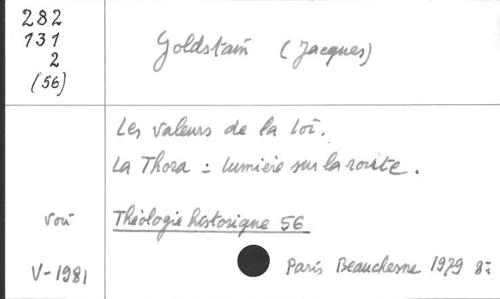 282
131
2
(56)
Goldstain (Jacques)
Les valeurs de la Loi.
La Thora : lumière sur la route.
voir
Théologie historique 56
V-1981
Paris Beauchesne 1979 8º